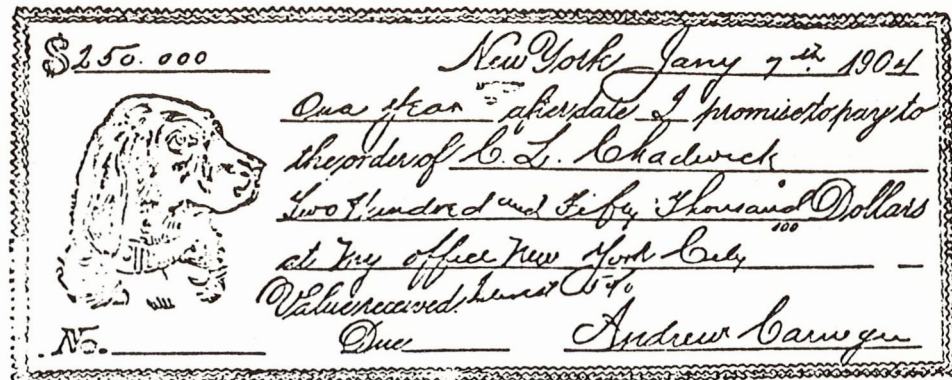 $250.000 New York Jany 7th 1904
One Year after date I promise to pay to
the order of C. L. Chadwick
Two Hundred and Fifty Thousand Dollars
at my office New York City
Value received. Interest 5%
No. Due Andrew Carnegie